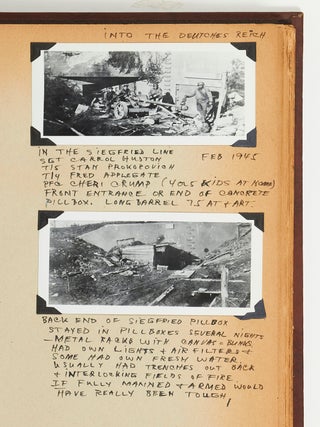 INTO THE DEUTCHES REICH
IN THE SIEGFRIED LINE
SGT CARROL HUSTON FEB 1945
T/5 STAN PROKOPOVICH
T/4 FRED APPLEGATE
PFC CHERI CRUMP (4 OR 5 KIDS AT HOME)
FRONT ENTRANCE OR END OF CONCRETE
PILLBOX. LONG BARREL 75 AT + ART.
BACK END OF SIEGFRIED PILLBOX
STAYED IN PILLBOXES SEVERAL NIGHTS
— METAL RACKS WITH CANVAS = BUNKS
HAD OWN LIGHTS + AIR FILTERS +
SOME HAD OWN FRESH WATER
USUALLY HAD TRENCHES OUT BACK
+ INTERLOCKING FIELDS OF FIRE
IF FULLY MANNED + ARMED WOULD
HAVE REALLY BEEN TOUGH!